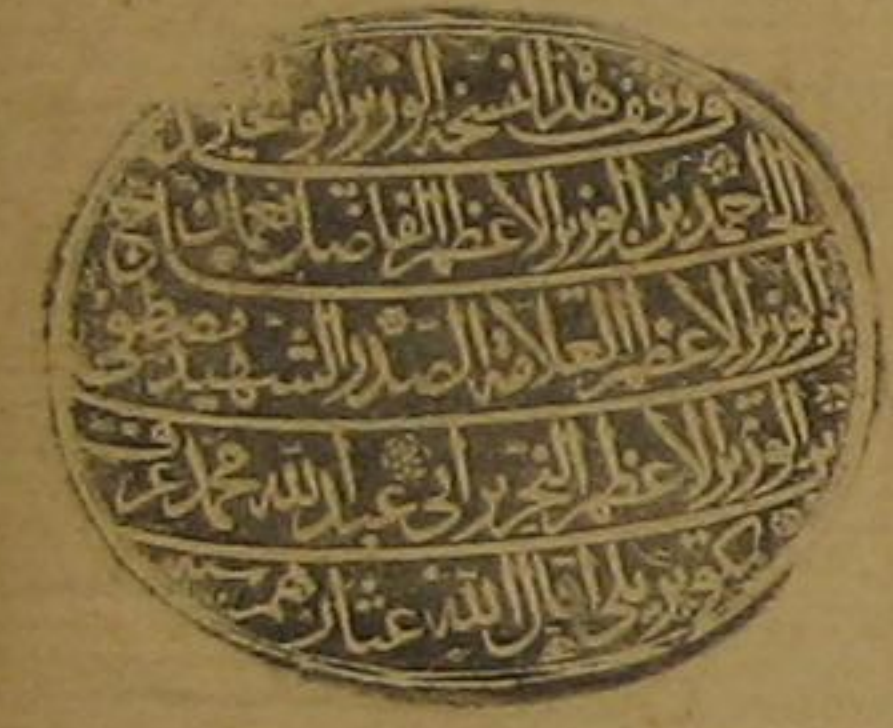 ووقف هذا النسخة الوزير أبو الخير
الحاج أحمد بن الوزير الاعظم الفاضل نعمان
بن الوزير الاعظم العلامة الصدر الشهيد مصطفى
بن الوزير الاعظم النحرير ابى عبد الله محمد عرف
بكوپريلى اقال الله عثارهم